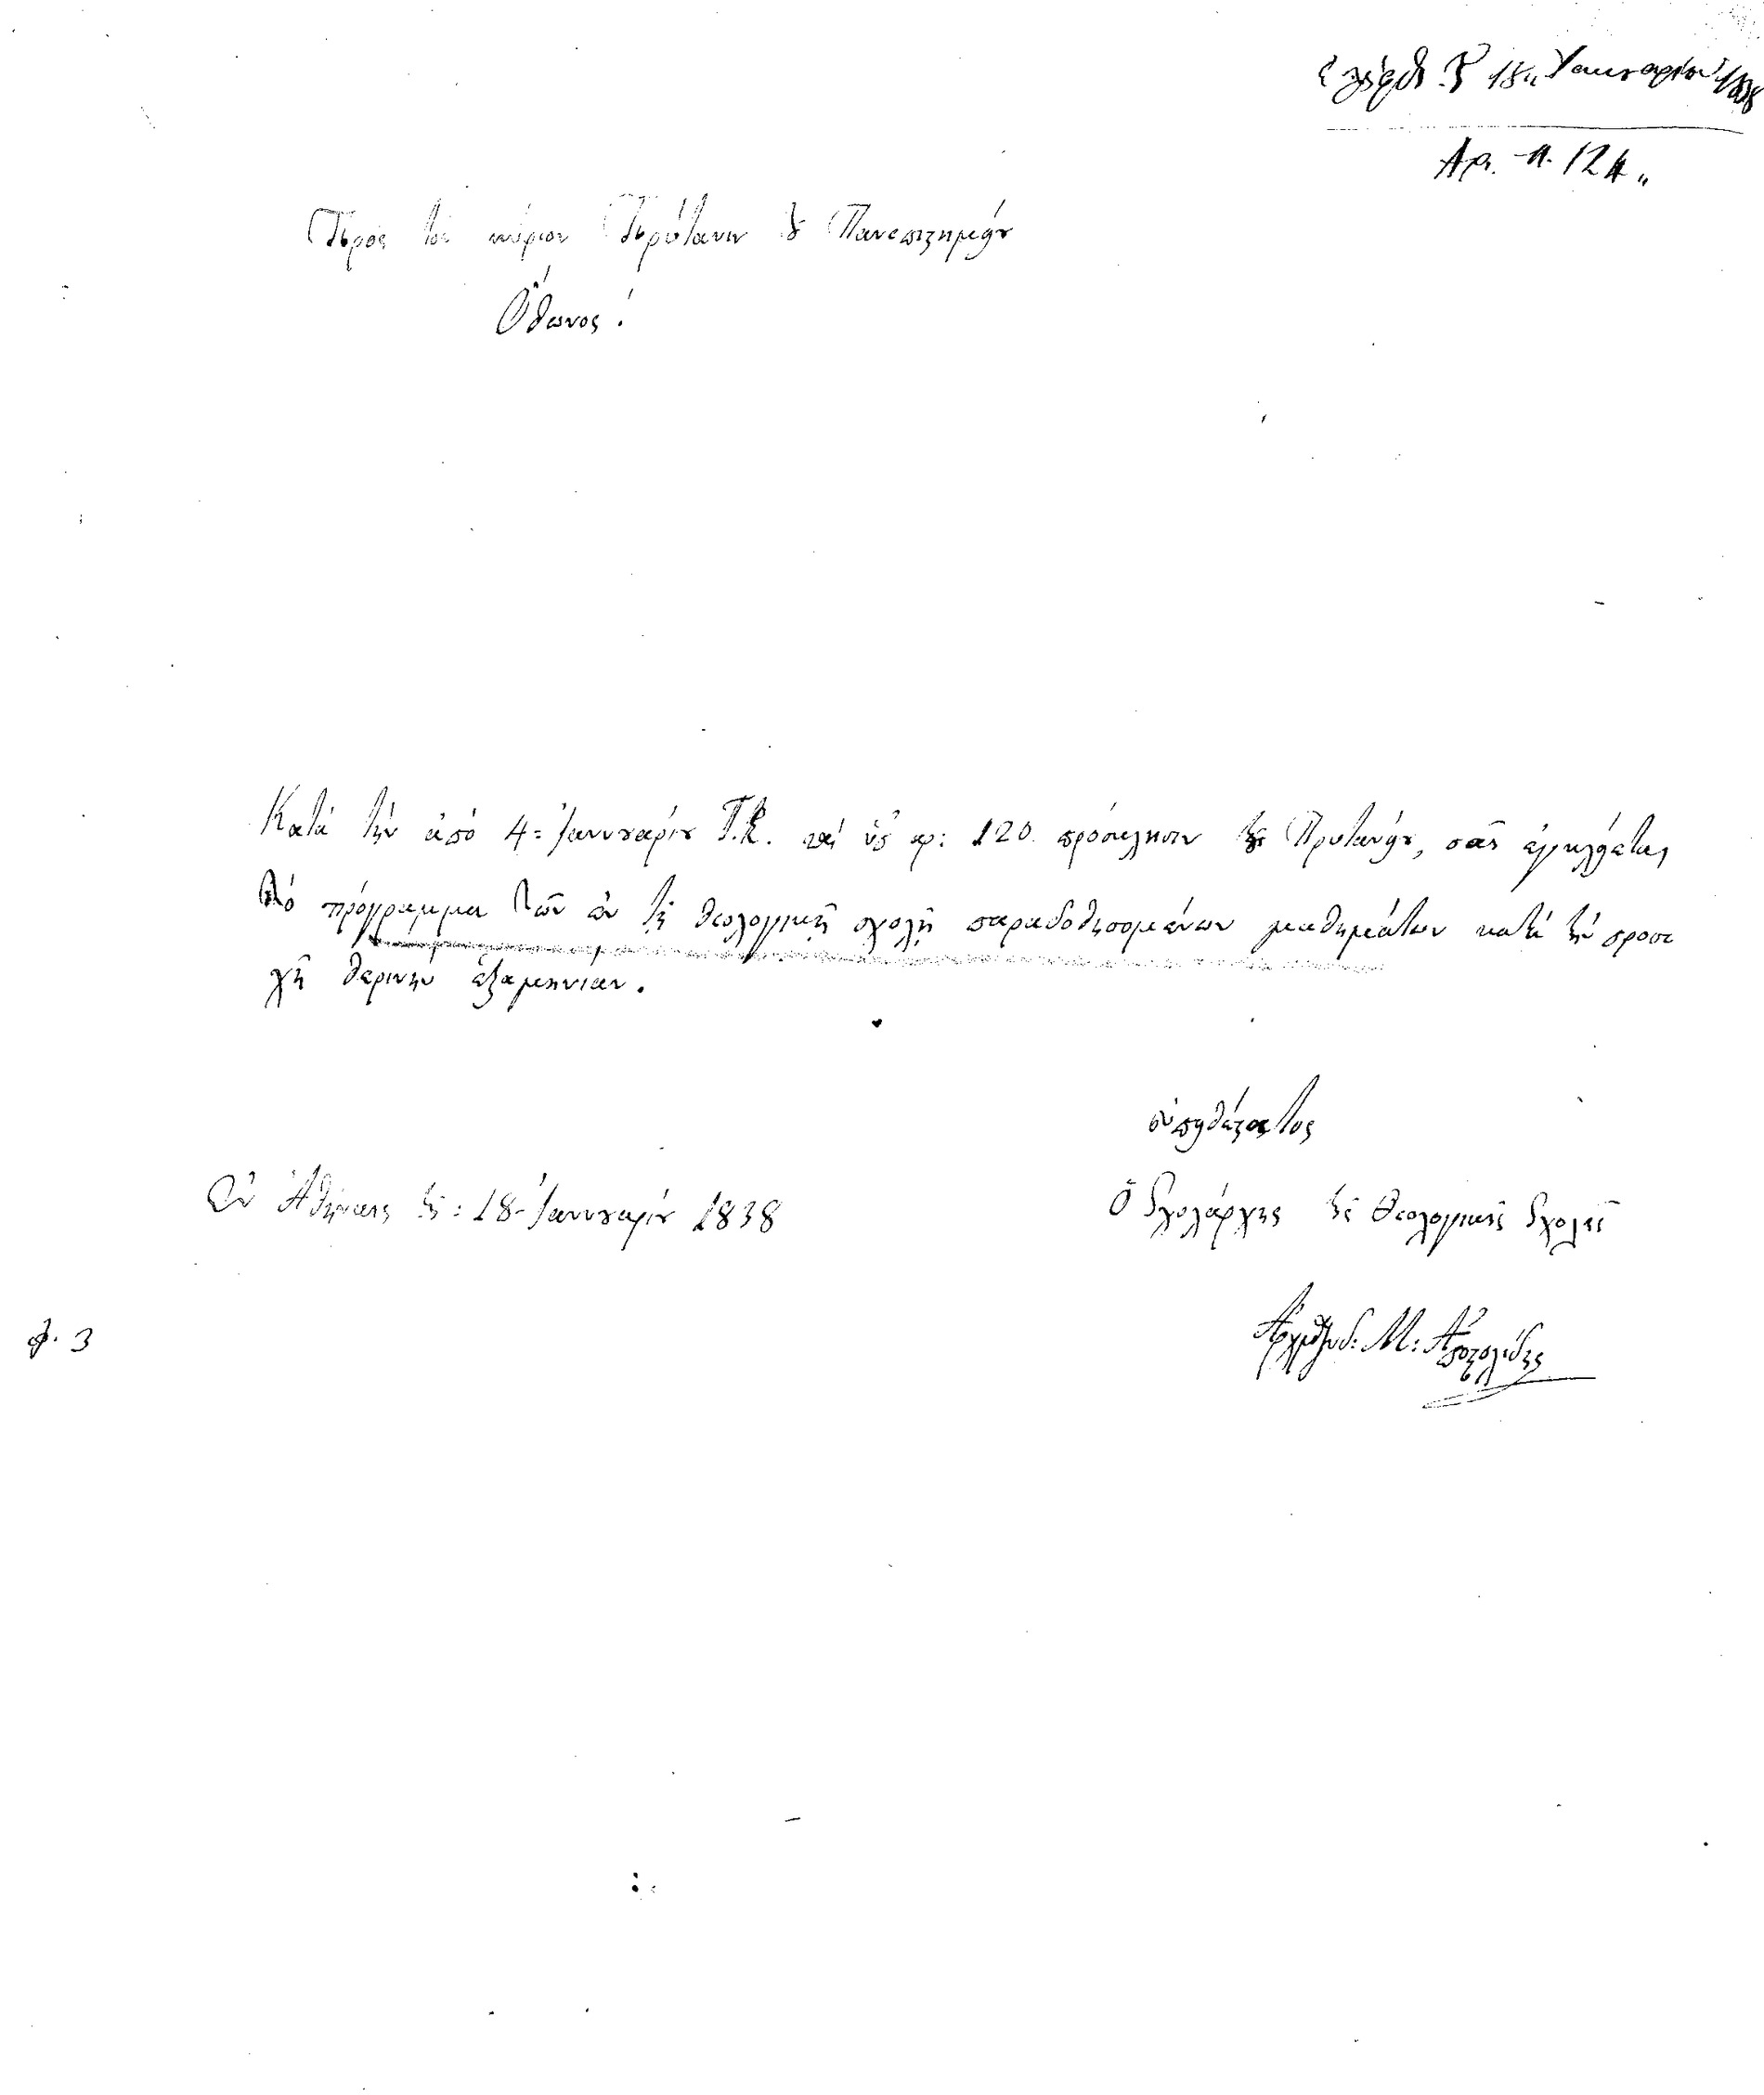 ἐλήφθ. τ. 18 Ἰανουαρίου 1838
Ἀρ. π. 124
Πρὸς τὸν κύριον Πρύτανιν τοῦ Πανεπιστημίου
Ὄθωνος!
Κατὰ τὴν ἀπὸ 4 Ἰανουαρίου Τ.Ἐ. καὶ ὑπ' ἀρ: 120. πρόσκλησιν τοῦ Πρυτανείου, σᾶς ἐγκλείεται
τὸ πρόγραμμα τῶν ἐν τῇ θεολογικῇ σχολῇ παραδοθησομένων μαθημάτων κατὰ τὴν προσε
χῆ θερινὴν ἑξαμηνίαν.
εὐπειθέστατος
Ἐν Ἀθήναις τῇ: 18 Ἰανουαρίου 1838
Ὁ Σχολάρχης τῆς Θεολογικῆς Σχολῆς
φ. 3
Ἀρχιμανδ: Μ: Ἀποστολίδης